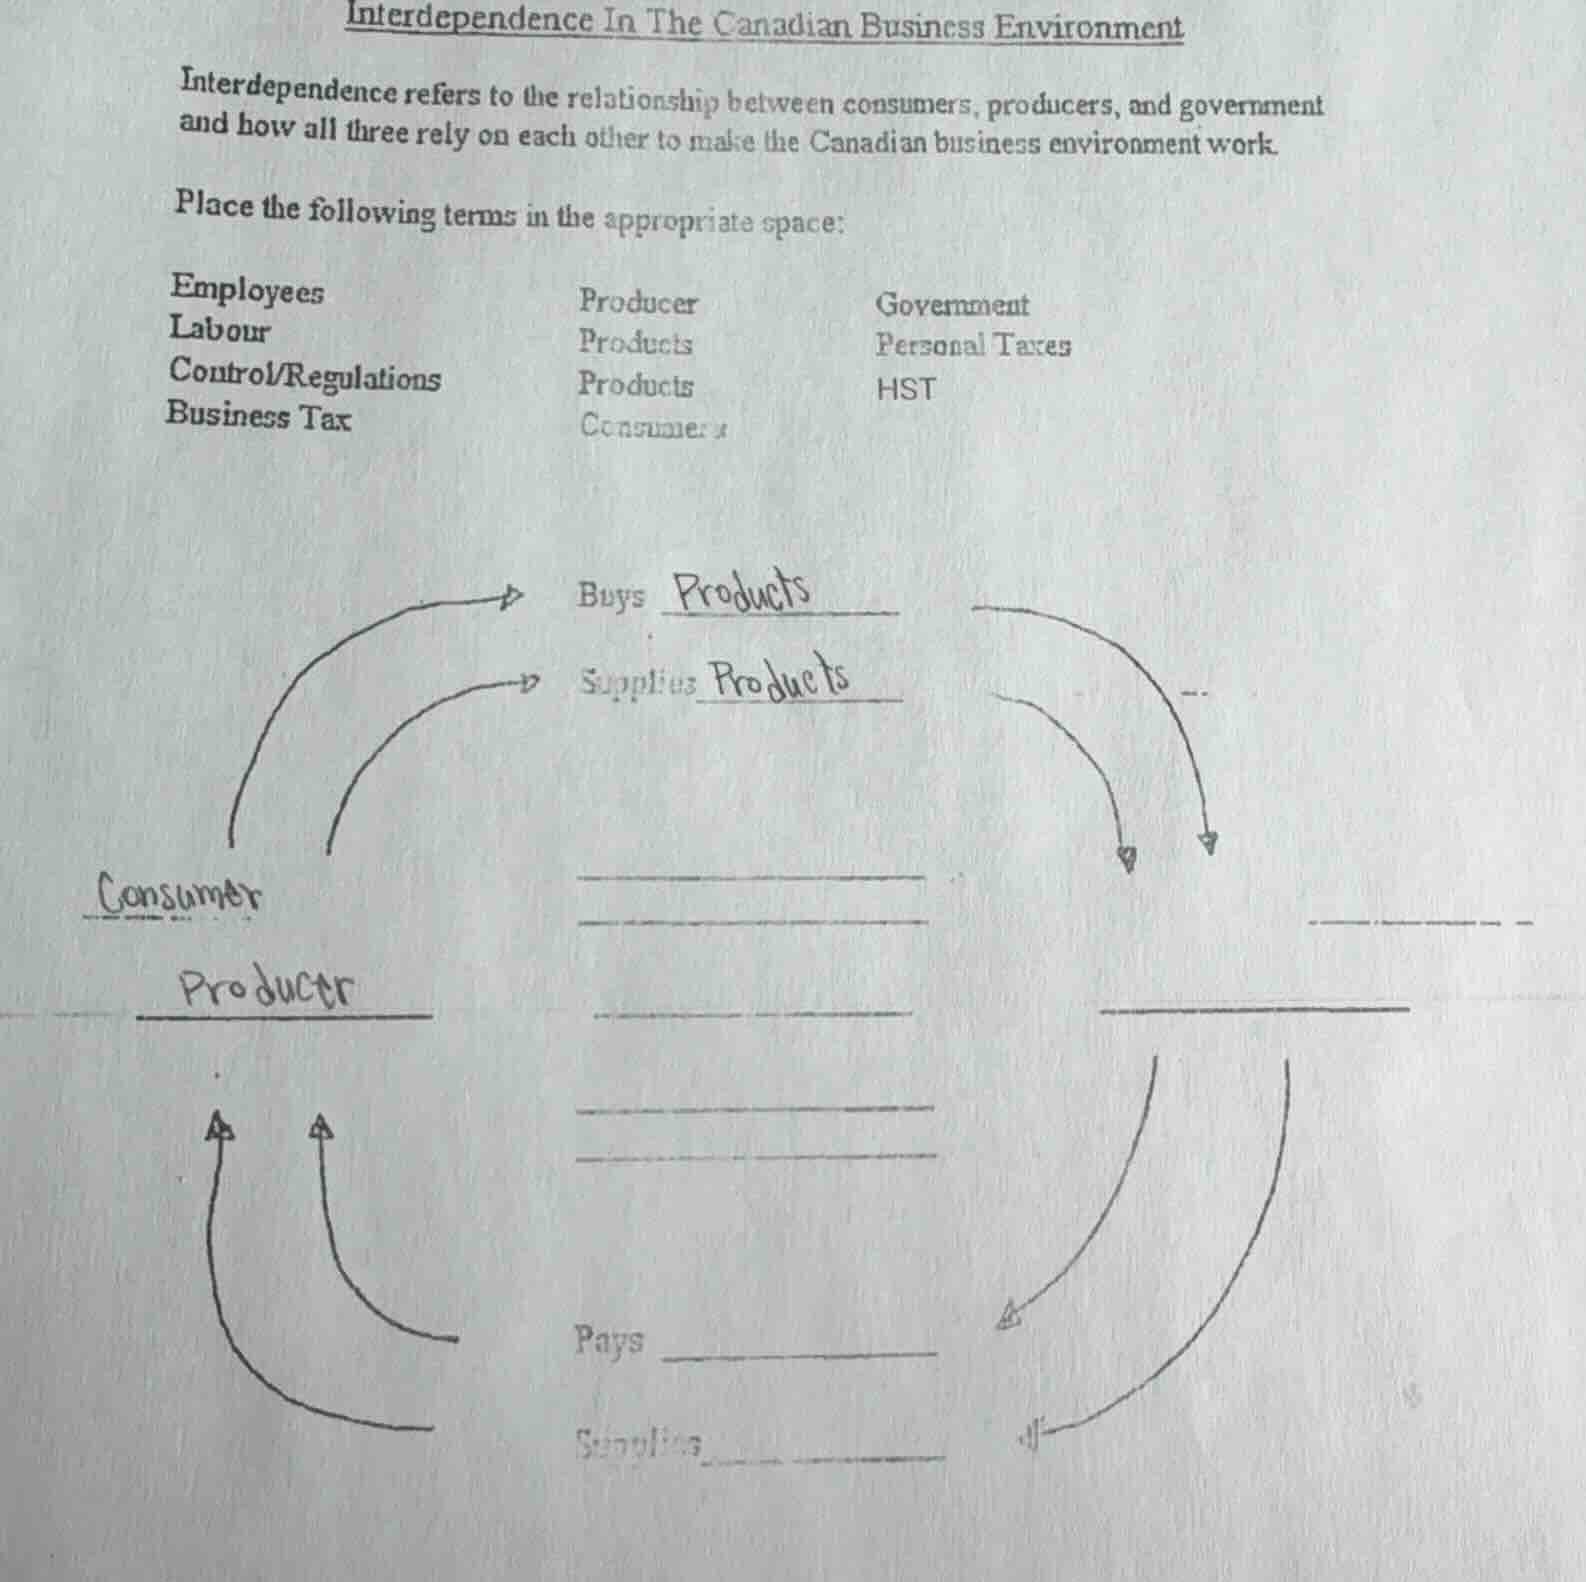 Interdependence In The Canadian Business Environment
Interdependence refers to the relationship between consumers, producers, and government
and how all three rely on each other to make the Canadian business environment work.
Place the following terms in the appropriate space:
Employees Producer Government
Labour Products Personal Taxes
Control/Regulations Products HST
Business Tax Consumers
Buys Products
Supplies Products
Consumer
Producer
Pays
Supplies